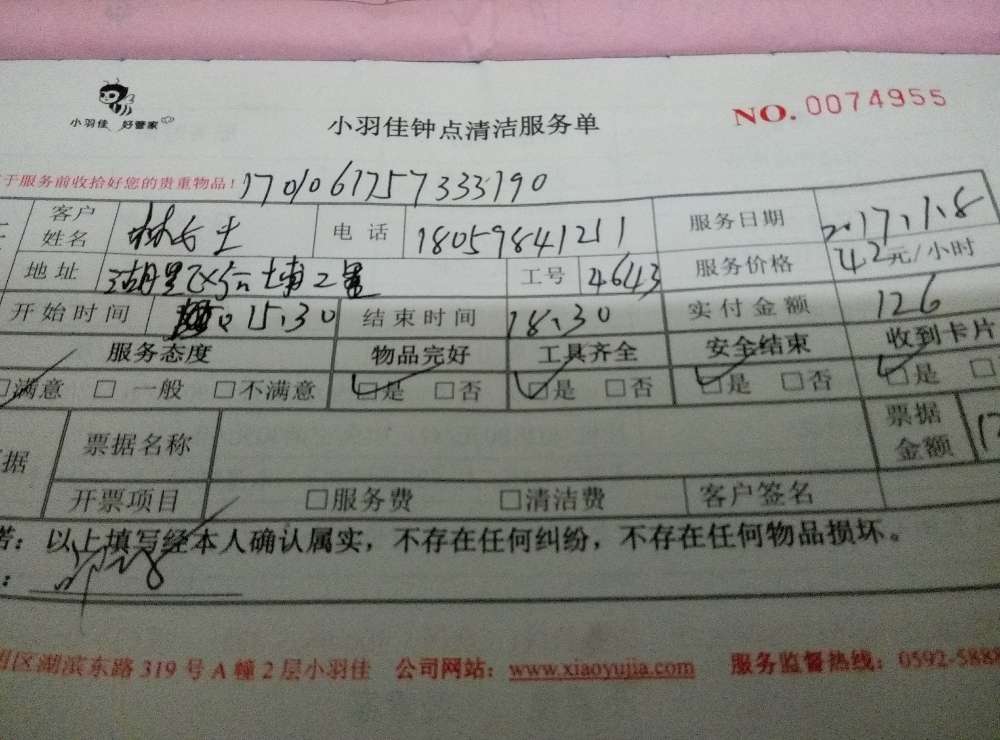 小羽佳 好管家
小羽佳钟点清洁服务单
NO. 0074955
于服务前收拾好您的贵重物品！ 170106175733319​0
客户姓名 林女士 电话 18059841211 服务日期 2017.1.8
地址 湖里区 工号 4643 服务价格 42元/小时
开始时间 15.30 结束时间 18.30 实付金额 126
服务态度 物品完好 工具齐全 安全结束 收到卡片
□满意 □ 一般 □不满意 □是 □否 □是 □否 □是 □否 □是 □
据 票据名称 票据金额
开票项目 □服务费 □清洁费 客户签名
若：以上填写经本人确认属实，不存在任何纠纷，不存在任何物品损坏。
区湖滨东路319号A幢2层小羽佳 公司网站：www.xiaoyujia.com 服务监督热线：0592-5888